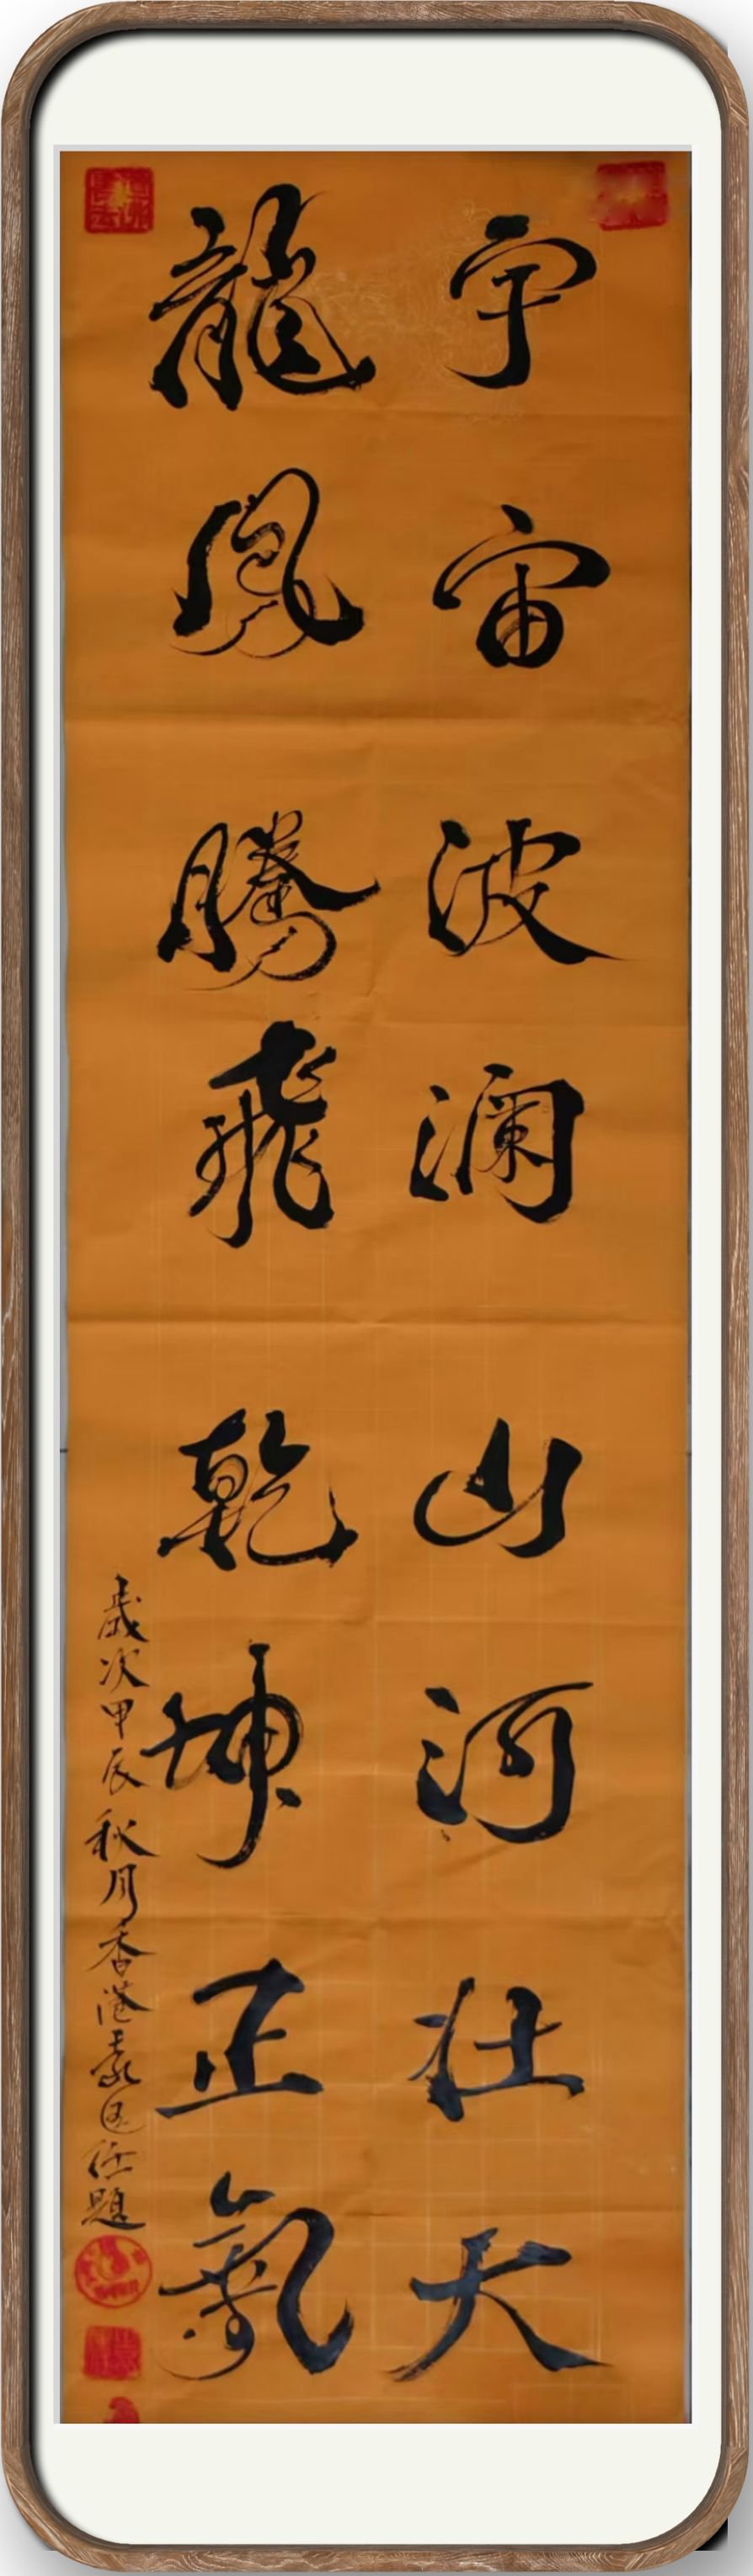 宇宙波澜山河壮大
龍鳳騰飛乾坤正氣
歲次甲辰秋月香港袁国任題